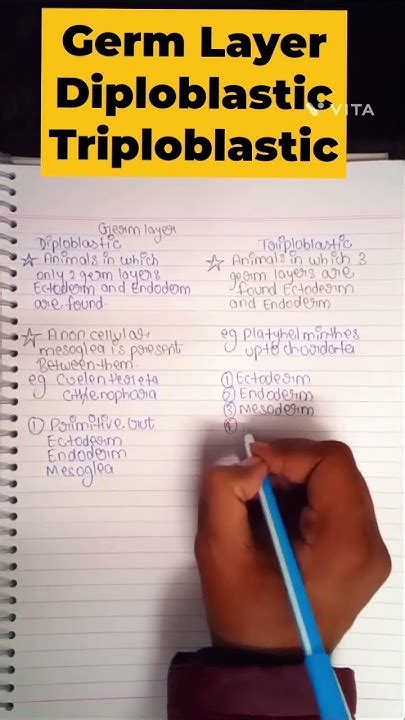 Germ Layer
Diploblastic
Triploblastic
VITA
Germ layer
Diploblastic
☆ Animals in which
only 2 germ layers
Ectoderm and Endoderm
are found.
☆ A non cellular
mesoglea is present
Between them.
eg Coelentereta
cthenophara
① Primitive Gut
Ectoderm
Endoderm
Mesoglea
Triploblastic
☆ Animals in which 3
germ layers are
found Ectoderm
and Endoderm
eg Platyhelminthes
upto chordata
① Ectoderm
② Endoderm
③ Mesoderm
④